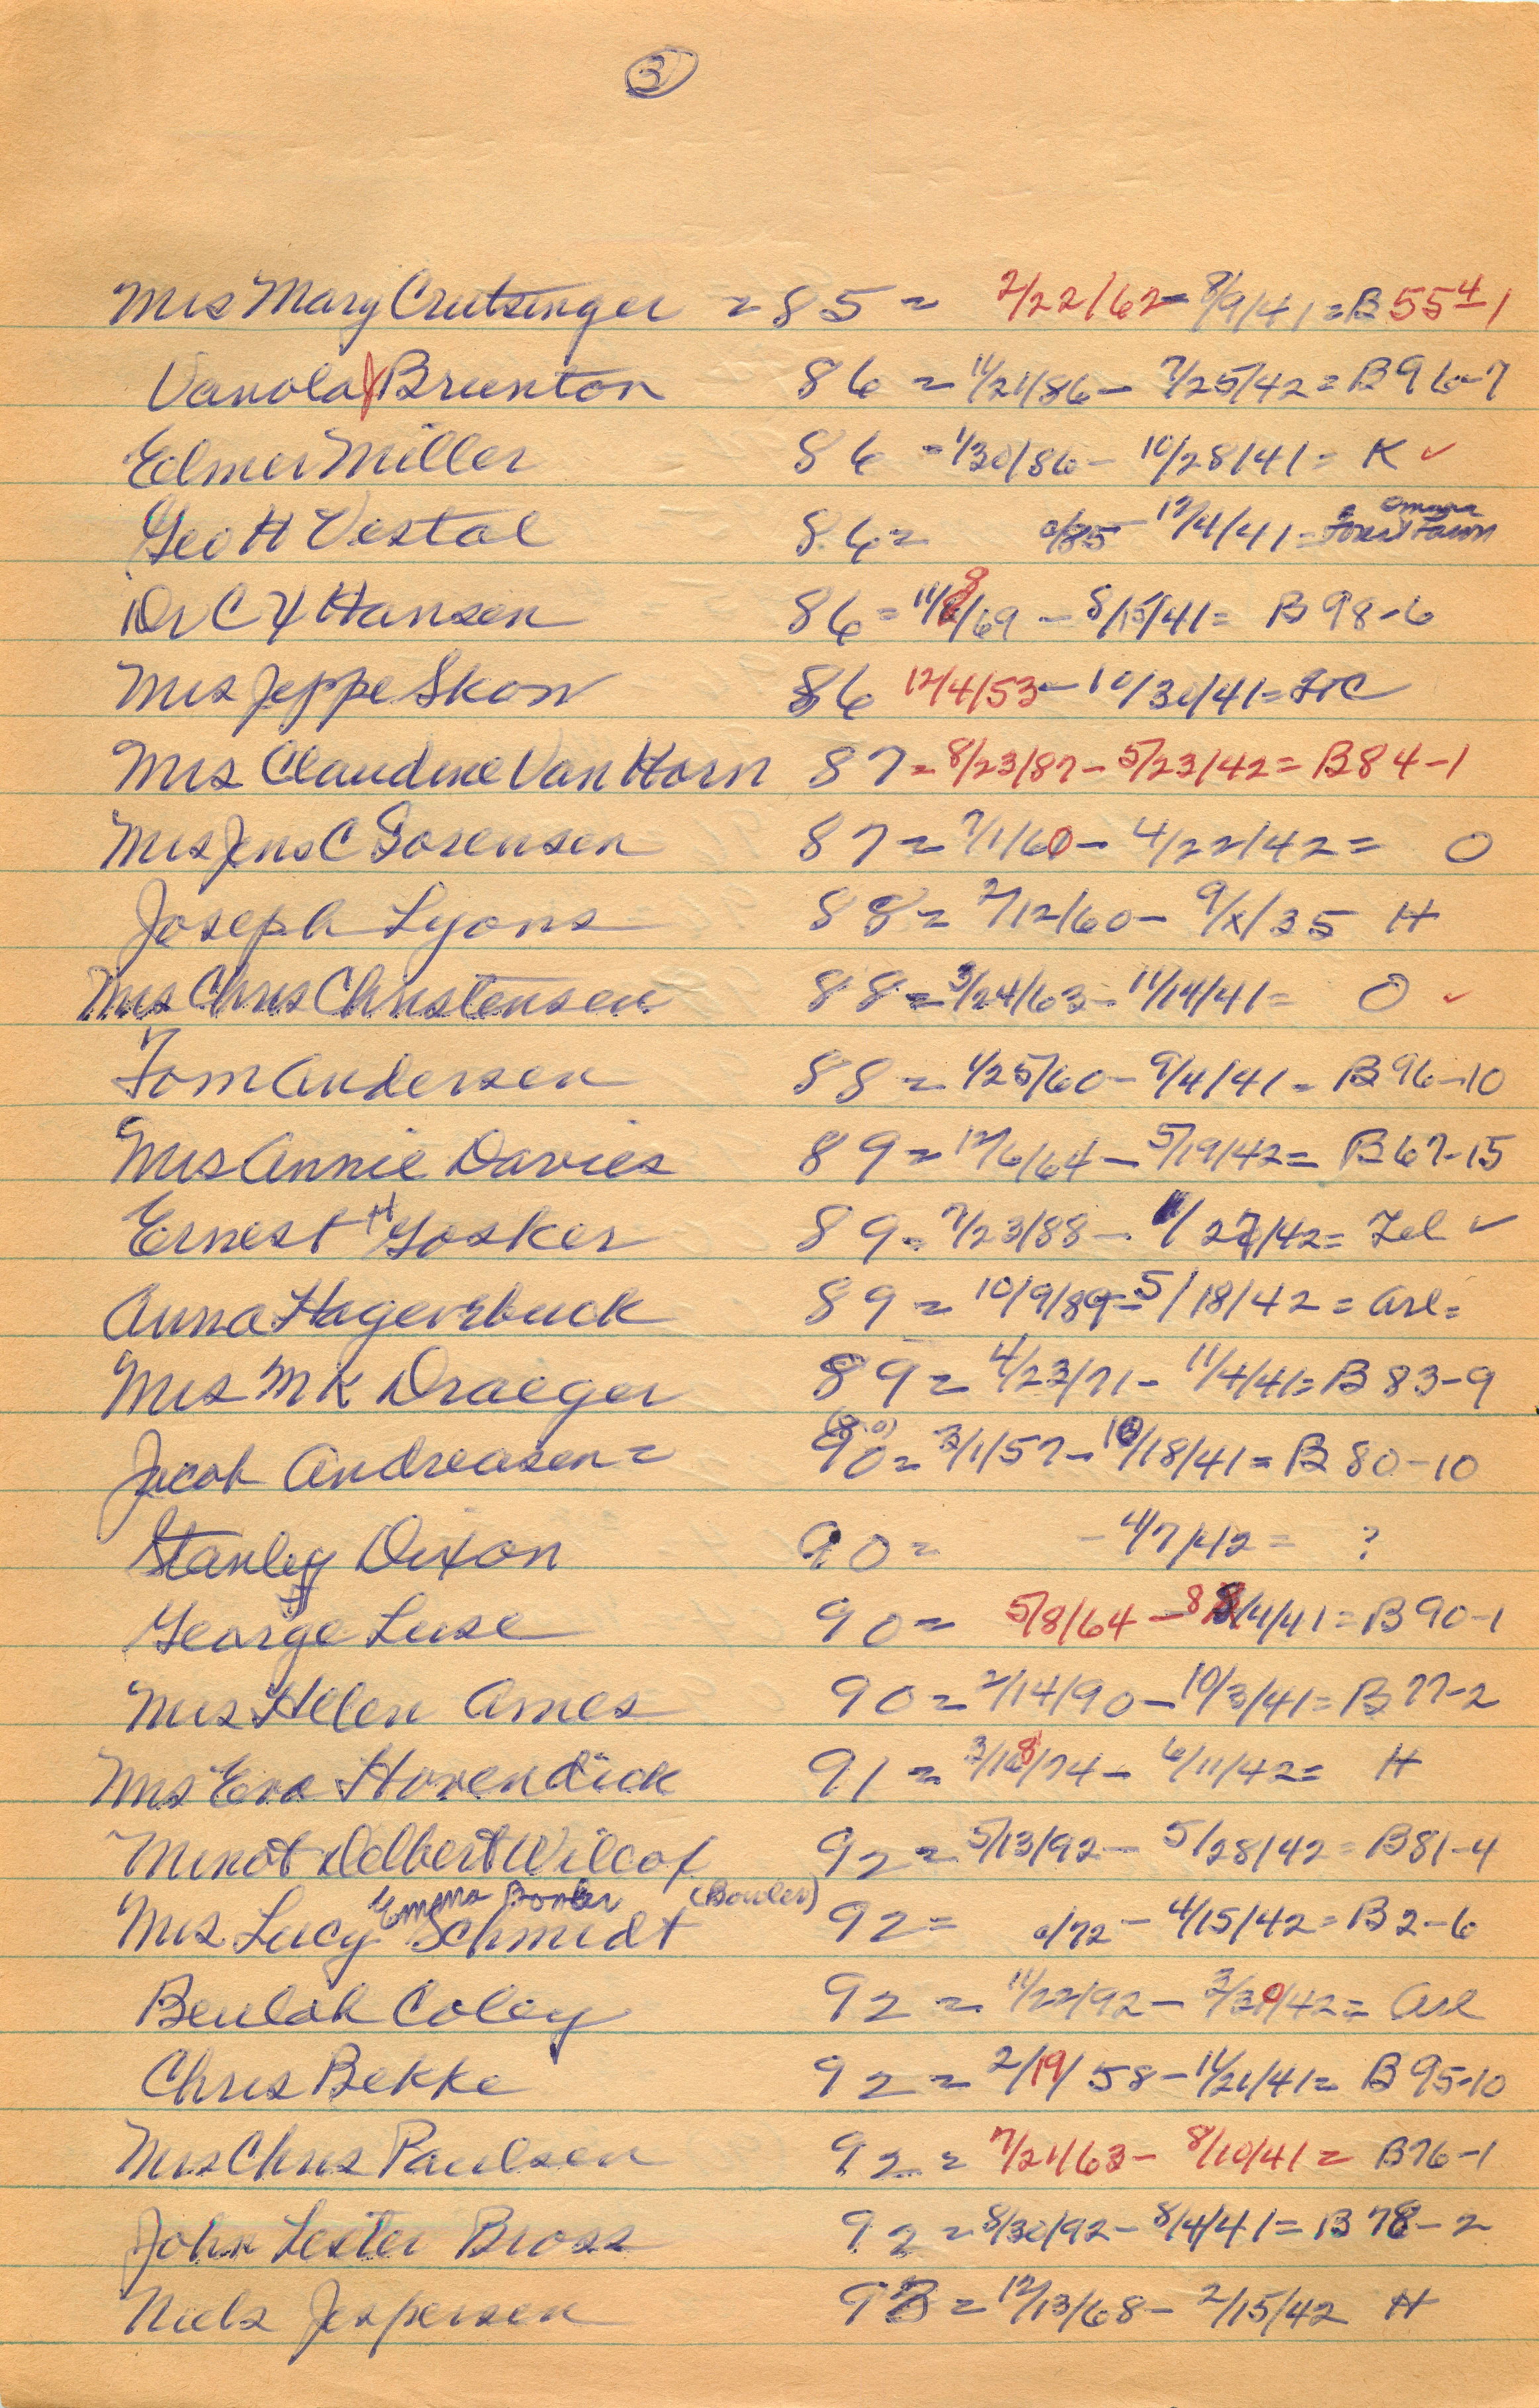 3
Mrs Mary Crutsinger = 85 = 2/22/62 - 8/9/41 = B 55 4-1
Vanola Brunton 86 = 11/21/86 - 7/25/42 = B 96-7
Elmer Miller 86 - 1/30/86 - 10/28/41 = K ✓
Geo H Vestal 86 = 0/85 - 12/4/41 = Forest Lawn Omaha
Dr C Y Hansen 86 = 11/8/69 - 8/15/41 = B 98-6
Mrs Jeppe Skow 86 12/4/53 - 10/30/41 =
Mrs Claudine Van Horn 87 = 8/23/87 - 5/23/42 = B 84-1
Mrs Jens C Sorensen 87 = 7/1/60 - 4/22/42 = O
Joseph Lyons 88 = 2/12/60 - 9/x/35 H
Mrs Chris Christensen 88 = 3/24/63 - 11/14/41 = O ✓
Tom Andersen 88 = 1/25/60 - 9/4/41 = B 96-10
Mrs Annie Davies 89 = 12/6/64 - 5/19/42 = B 67-15
Ernest H Gosker 89 = 7/23/88 - 27/42 = Tel ✓
Anna Hagenbuck 89 = 10/9/89 = 5/18/42 = Arl =
Mrs M K Draeger 89 = 4/23/71 - 11/4/41 = B 83-9
Jacob Andreasen = 90 = 3/1/57 - 10/18/41 = B 80-10
Stanley Dixon 90 = - 4/7/42 = ?
George Luse 90 = 5/8/64 - 8/4/41 = B 90-1
Mrs Helen Ames 90 = 2/14/90 - 10/3/41 = B 77-2
Mrs Eva Hovendick 91 = 3/18/74 - 6/11/42 = H
Minot Delbert Wilcox 92 = 5/13/92 - 5/28/42 = B 81-4
Emma Bowler (Bowler)
Mrs Lucy Schmidt 92 = 0/72 - 4/15/42 = B 2-6
Beulah Coley 92 = 11/22/92 - 3/30/42 = Arl
Chris Bekke 92 = 2/19/58 - 11/21/41 = B 95-10
Mrs Chris Paulsen 92 = 7/21/63 - 8/10/41 = B 76-1
John Lester Bross 92 = 8/30/92 - 8/4/41 = B 78-2
Niels Jespersen 93 = 12/13/68 - 2/15/42 H